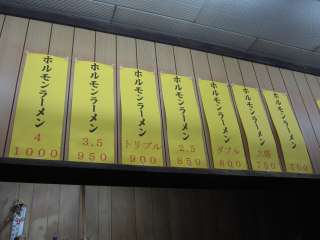 ホルモンラーメン
4
1000
ホルモンラーメン
3.5
950
ホルモンラーメン
トリプル
900
ホルモンラーメン
2.5
850
ホルモンラーメン
ダブル
800
ホルモンラーメン
大盛
750
ホルモンラーメン
700